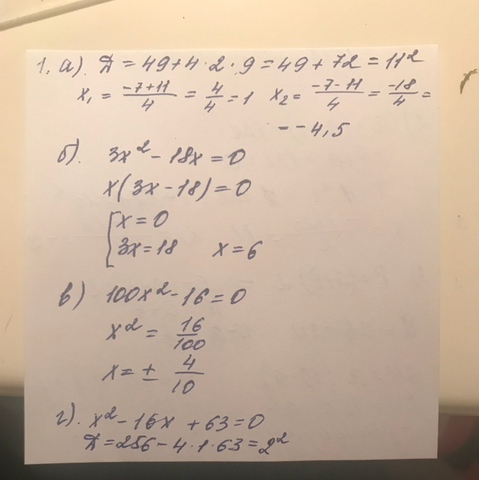 1. а). Д = 49+4·2·9 = 49+72 = 11²
x₁ = (-7+11)/4 = 4/4 = 1 x₂ = (-7-11)/4 = -18/4 =
= -4,5
б). 3x² - 18x = 0
x(3x - 18) = 0
[x = 0
3x = 18 x = 6
в) 100x² - 16 = 0
x² = 16/100
x = ± 4/10
г). x² - 16x + 63 = 0
Д = 256 - 4·1·63 = 2²